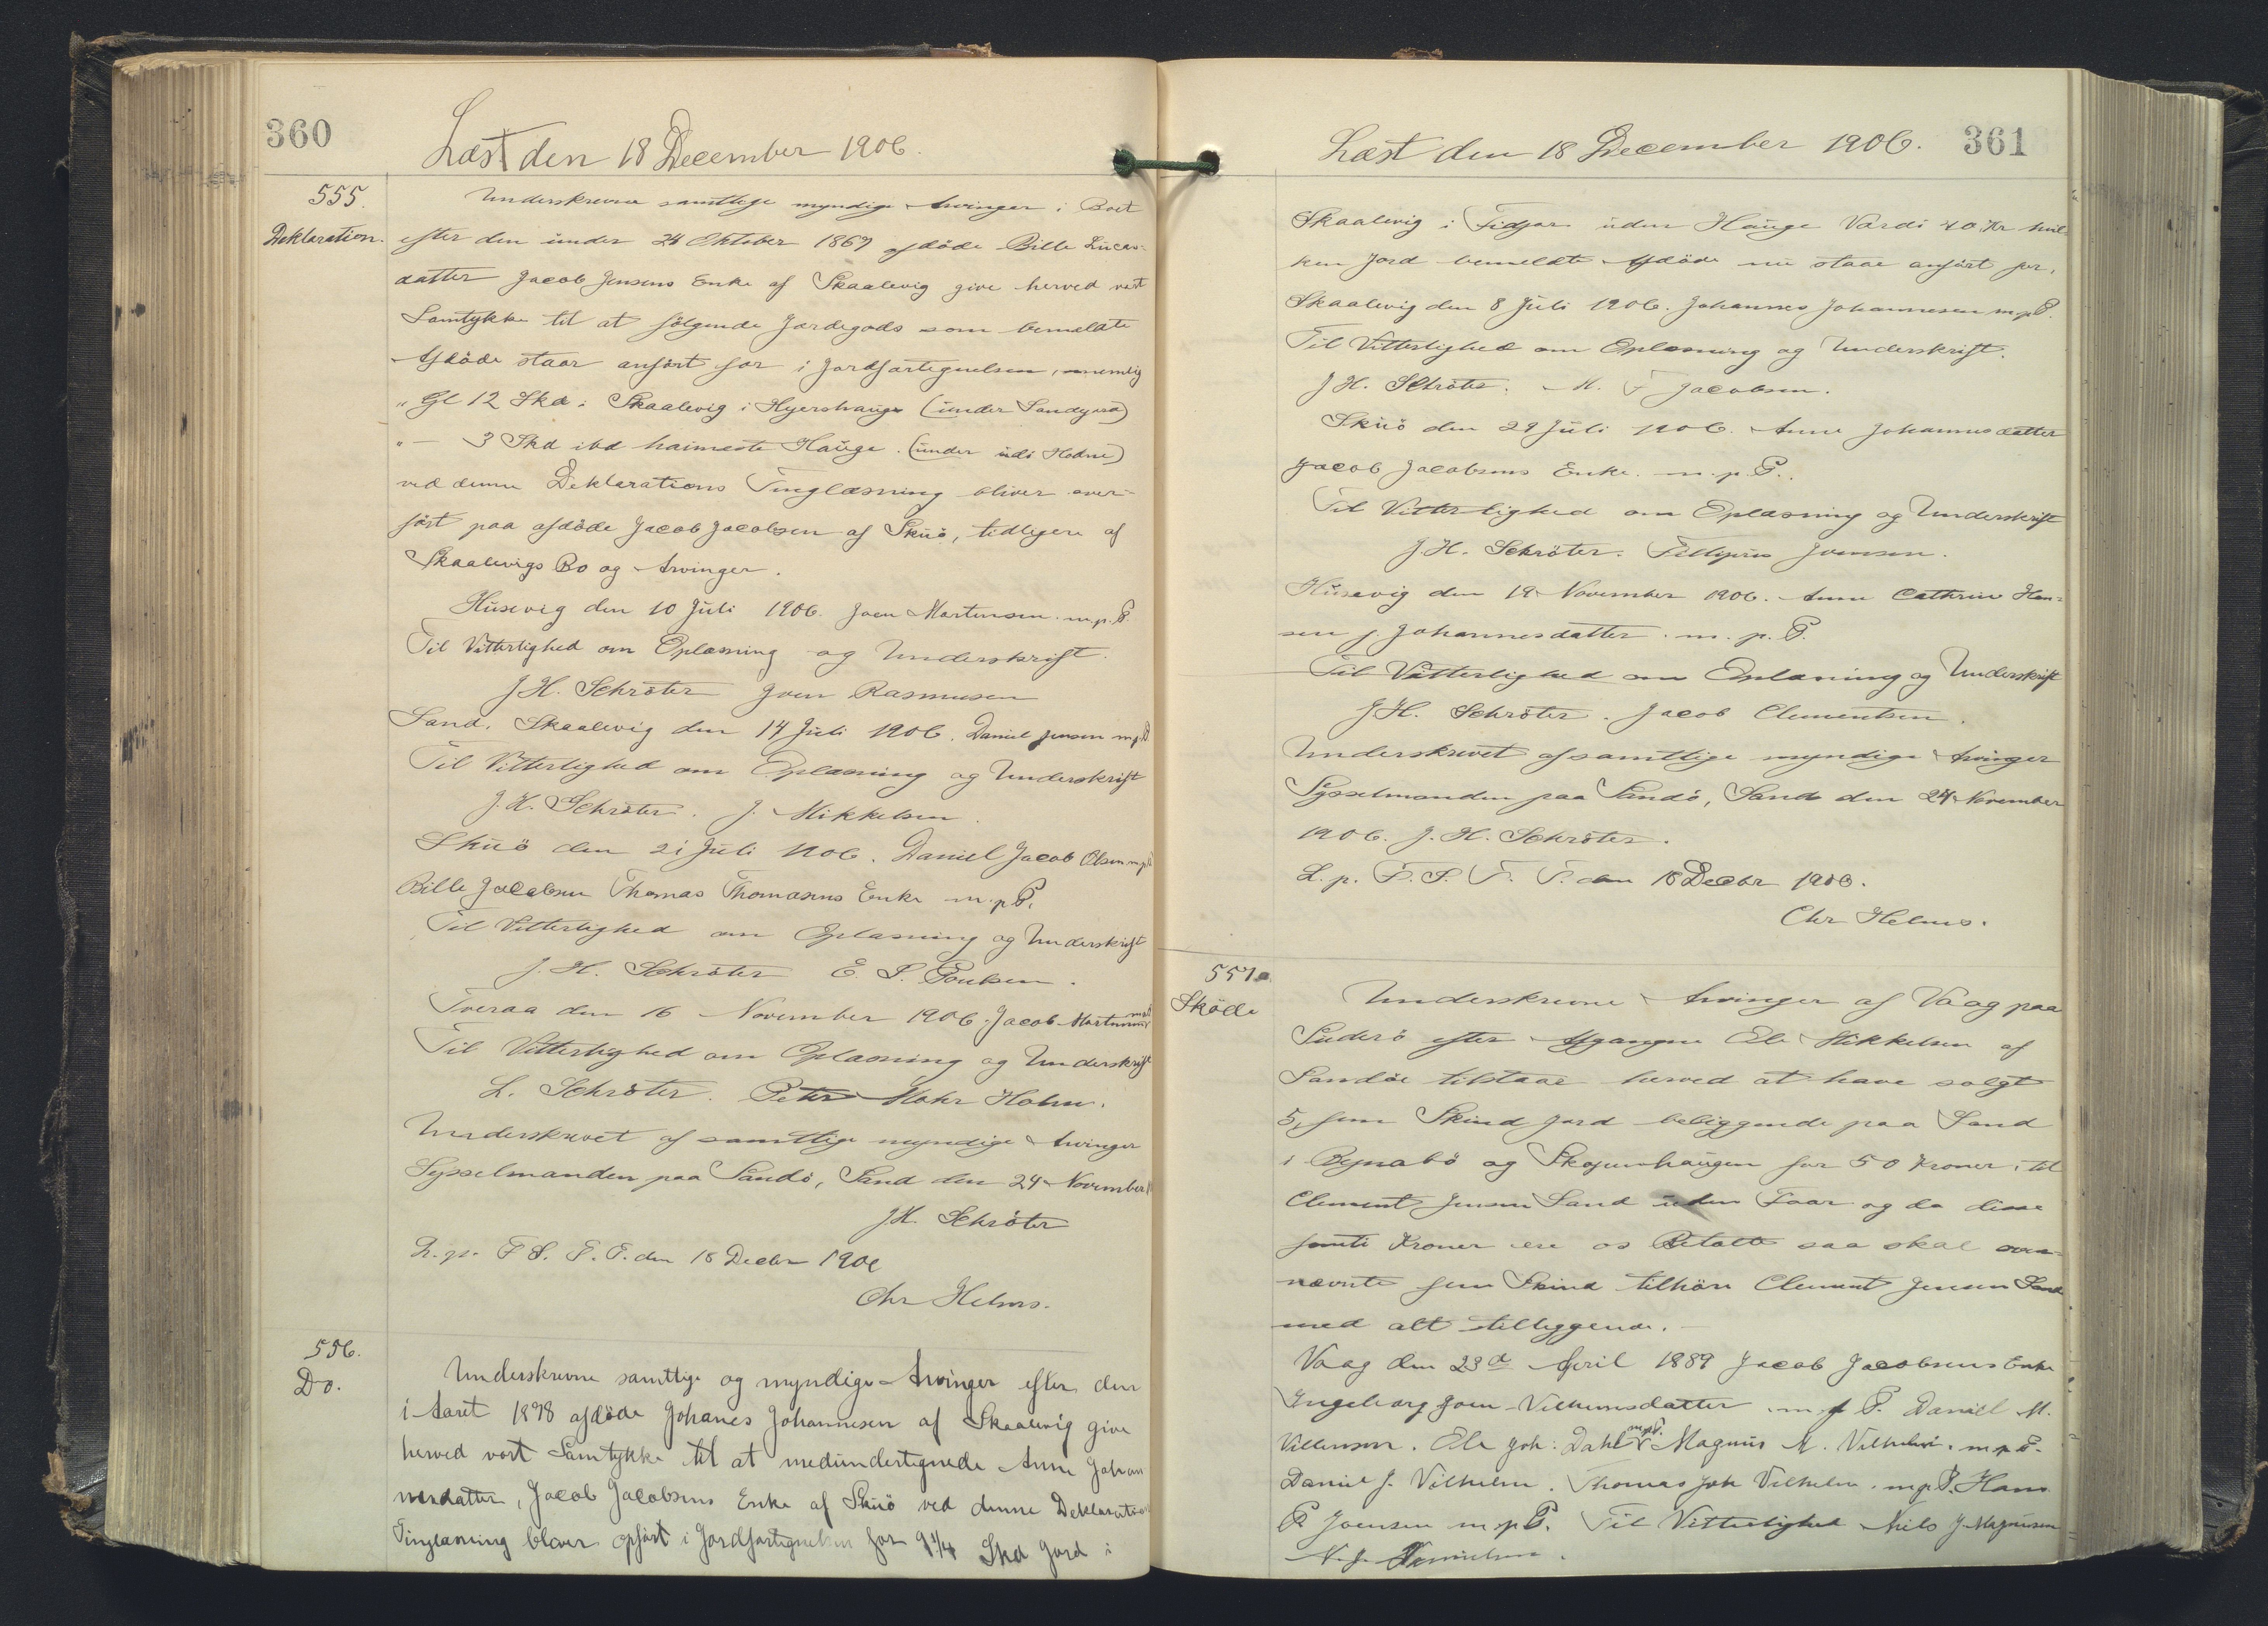 360
Læst den 18 December 1906.
555.
Deklaration.
Underskrevne samtlige myndige Arvinger i Boet
efter den under 24 Oktober 1867 afdöde Bille Lucas-
datter Jacob Jensens Enke af Skaalevig give herved vort
Samtykke til at fölgende Jordegods som bemeldte
Afdöde staar anfört for i Jordfortegnelsen, nemlig
" Gl 12 Skd i Skaalevig i Hyershauge (under Sandgerd)
" — 3 Skd ibd haimeste Hauge. (under udi Hodne)
ved denne Deklarations Tinglæsning bliver over-
fört paa afdöde Jacob Jacobsen af Skuö, tidligere af
Skaalevigs Bo og Arvinger.
Husevig den 10 Juli 1906. Joen Martensen. m.p.P.
Til Vitterlighed om Oplæsning og Underskrift.
J.H. Schröter Joen Rasmusen
Sand. Skaalevig den 14 Juli 1906. Daniel Jensen m.p.P.
Til Vitterlighed om Oplæsning og Underskrift
J.H. Schröter. J. Mikkelsen.
Skuö den 21 Juli 1906. Daniel Jacob Olsen m.p.P.
Bille Jacobsen Thomas Thomasens Enke m.p.P.
Til Vitterlighed om Oplæsning og Underskrift
J.H. Schröter E. P. Poulsen.
Tveraa den 16 November 1906. Jacob Martensen
Til Vitterlighed om Oplæsning og Underskrift
L. Schröter. Peter Mohr Holm.
Underskrevet af samtlige myndige Arvinger
Sysselmanden paa Sandö, Sand den 24 November
J.H. Schröter
L.p. F.S.T.T. den 18 Decbr 1906
Chr Helms.
556.
Do.
Underskrevne samtlige og myndige Arvinger efter den
i Aaret 1898 afdöde Johanes Johannesen af Skaalevig give
herved vort Samtykke til at medundertegnede Anne Johan
nesdatter, Jacob Jacobsens Enke af Skuö ved denne Deklarations
Tinglæsning bliver opfört i Jordfortegnelsen for 9 1/4 Skd Jord i
361
Læst den 18 December 1906.
Skaalevig i Fidjar uden Hauge Værdi 40 Kr hvil-
ken Jord bemeldte Afdöde nu staar anfört for.
Skaalevig den 8 Juli 1906. Johannes Johannesen m.p.P.
Til Vitterlighed om Oplæsning og Underskrift.
J.H. Schröter. M. F Jacobsen.
Skuö den 29 Juli 1906. Anne Johannesdatter
Jacob Jacobsens Enke. m.p.P.
Til Vitterlighed om Oplæsning og Underskrift
J.H. Schröter. Joensen.
Husevig den 19 November 1906. Anne Cathrine Han-
sen f. Johannesdatter. m.p.P.
Til Vitterlighed om Oplæsning og Underskrift
J.H. Schröter. Jacob Clementsen.
Underskrevet af samtlige myndige Arvinger
Sysselmanden paa Sandö, Sand den 24 November
1906. J.H. Schröter.
L.p. F.S.T.T. den 18 Decbr 1906.
Chr Helms.
557.
Sköde
Underskrevne Arvinger af Vaag paa
Suderö efter Afgangne Ole Mikkelsen af
Sandöe tilstaae herved at have solgt
5, fem Skind Jord beliggende paa Sand
i og for 50 Kroner, til
Clement Jensen Sand uden Faar og da disse
femti Kroner ere os Betalte saa skal oven-
nævnte fem Skind tilhöre Clement Jensen Sand
med alt tilliggende. —
Vaag den 23de April 1889 Jacob Jacobsens Enke
Ingeborg Joen-Vilhumsdatter m.p.P. Daniel M.
Villumsen. Ole Joh: Dahl m.p.P. Magnus M. Vilhelm. m.p.P.
Daniel J. Vilhelm. Thomas Joh Vilhelm. m.p.P. Hans
P Joensen m.p.P. Til Vitterlighed Niels J. Magnusen
N. J.